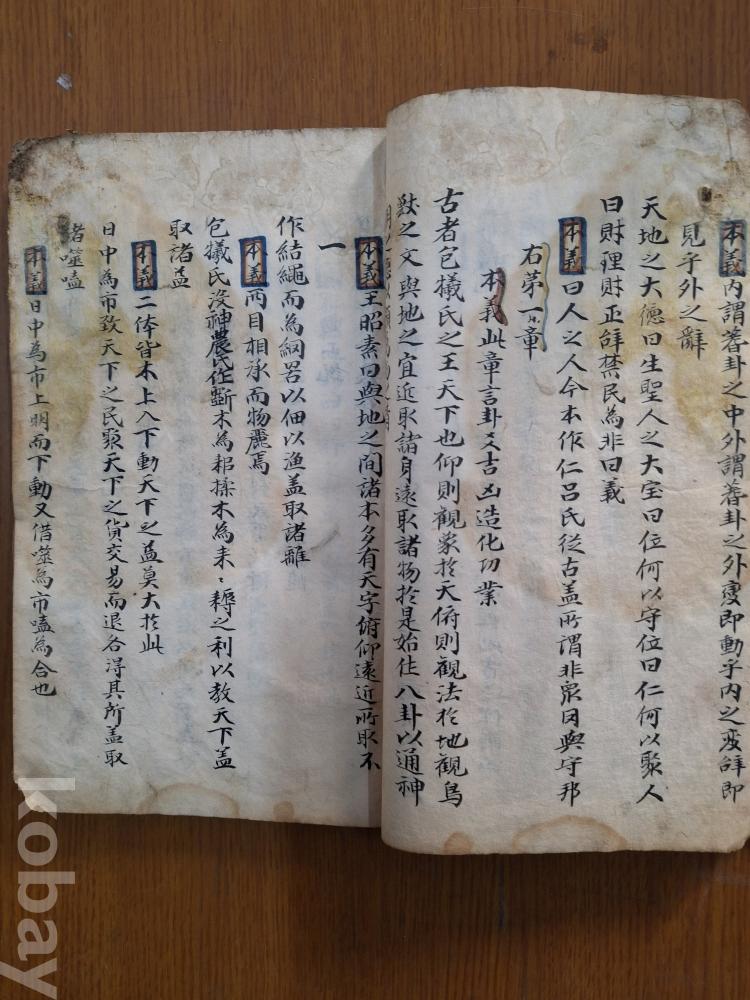 本義內謂蓍卦之中外謂蓍卦之外變即動乎內之变辝即
見乎外之辭
天地之大德曰生聖人之大宝曰位何以守位曰仁何以聚人
曰財理財正辝禁民為非曰義
本義曰人之人今本作仁呂氏從古盖所謂非衆罔與守邦
右苐一章
本義此章言卦爻吉凶造化功業
古者包犧氏之王天下也仰則觀象於天俯則觀法於地觀鳥
獸之文與地之宜近取諸身遠取諸物於是始作八卦以通神
本義王昭素曰與地之間諸本多有天字俯仰遠近所取不
一
作結繩而為網罟以佃以渔盖取諸離
本義两目相承而物麗焉
包犧氏沒神農氏作斲木為耜揉木為耒〻耨之利以教天下盖
取諸益
本義二体皆木上入下動天下之益莫大於此
日中為市致天下之民聚天下之貨交易而退各得其所盖取
諸噬嗑
本義日中為市上明而下動又借噬為市嗑為合也
kobay